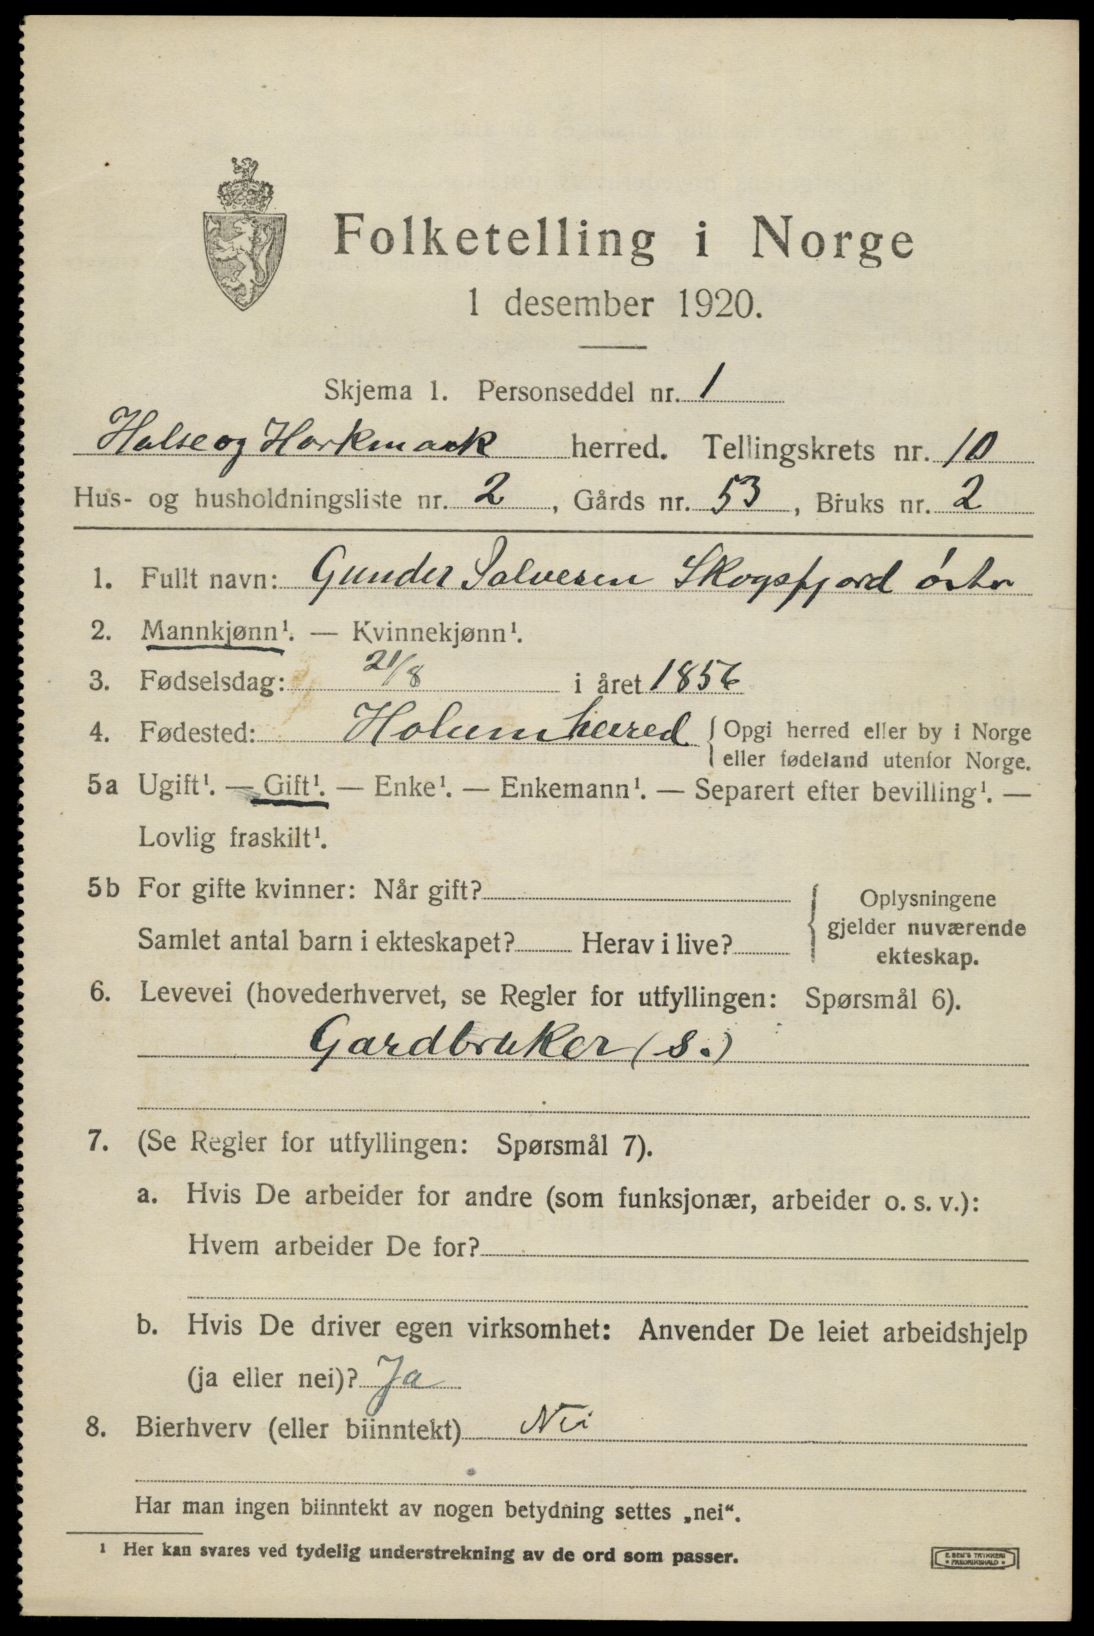 Folketelling i Norge
1 desember 1920.
Skjema 1. Personseddel nr. 1
Halse og Harkmark herred. Tellingskrets nr. 10
Hus- og husholdningsliste nr. 2, Gårds nr. 53, Bruks nr. 2
1. Fullt navn: Gunder Salvesen Skogsfjord østr
2. Mannkjønn¹. — Kvinnekjønn¹.
3. Fødselsdag: 21/8 i året 1856
4. Fødested: Holum herred { Opgi herred eller by i Norge
eller fødeland utenfor Norge.
5a Ugift¹. — Gift¹. — Enke¹. — Enkemann¹. — Separert efter bevilling¹. —
Lovlig fraskilt¹.
5b For gifte kvinner: Når gift?
Samlet antal barn i ekteskapet? Herav i live?
{ Oplysningene
gjelder nuværende
ekteskap.
6. Levevei (hovederhvervet, se Regler for utfyllingen: Spørsmål 6).
Gardbruker (s.)
7. (Se Regler for utfyllingen: Spørsmål 7).
a. Hvis De arbeider for andre (som funksjonær, arbeider o. s. v.):
Hvem arbeider De for?
b. Hvis De driver egen virksomhet: Anvender De leiet arbeidshjelp
(ja eller nei)? Ja
8. Bierhverv (eller biinntekt) Nei
Har man ingen biinntekt av nogen betydning settes „nei“.
¹ Her kan svares ved tydelig understrekning av de ord som passer.
E. SEM'S TRYKKERI
FREDRIKSHALD